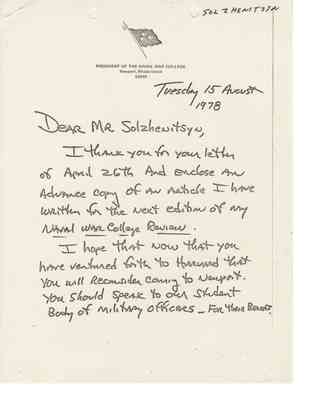 SOLZHENITSYN
PRESIDENT OF THE NAVAL WAR COLLEGE
Newport, Rhode Island
02840
Tuesday 15 August
1978
Dear Mr Solzhenitsyn,
I thank you for your letter
of April 26th And enclose An
Advance copy of An Article I have
written for the next edition of my
Naval War College Review.
I hope that now that you
have ventured forth to Harvard that
you will Reconsider coming to Newport.
You should speak to our student
Body of military officers – For Their Benefit.